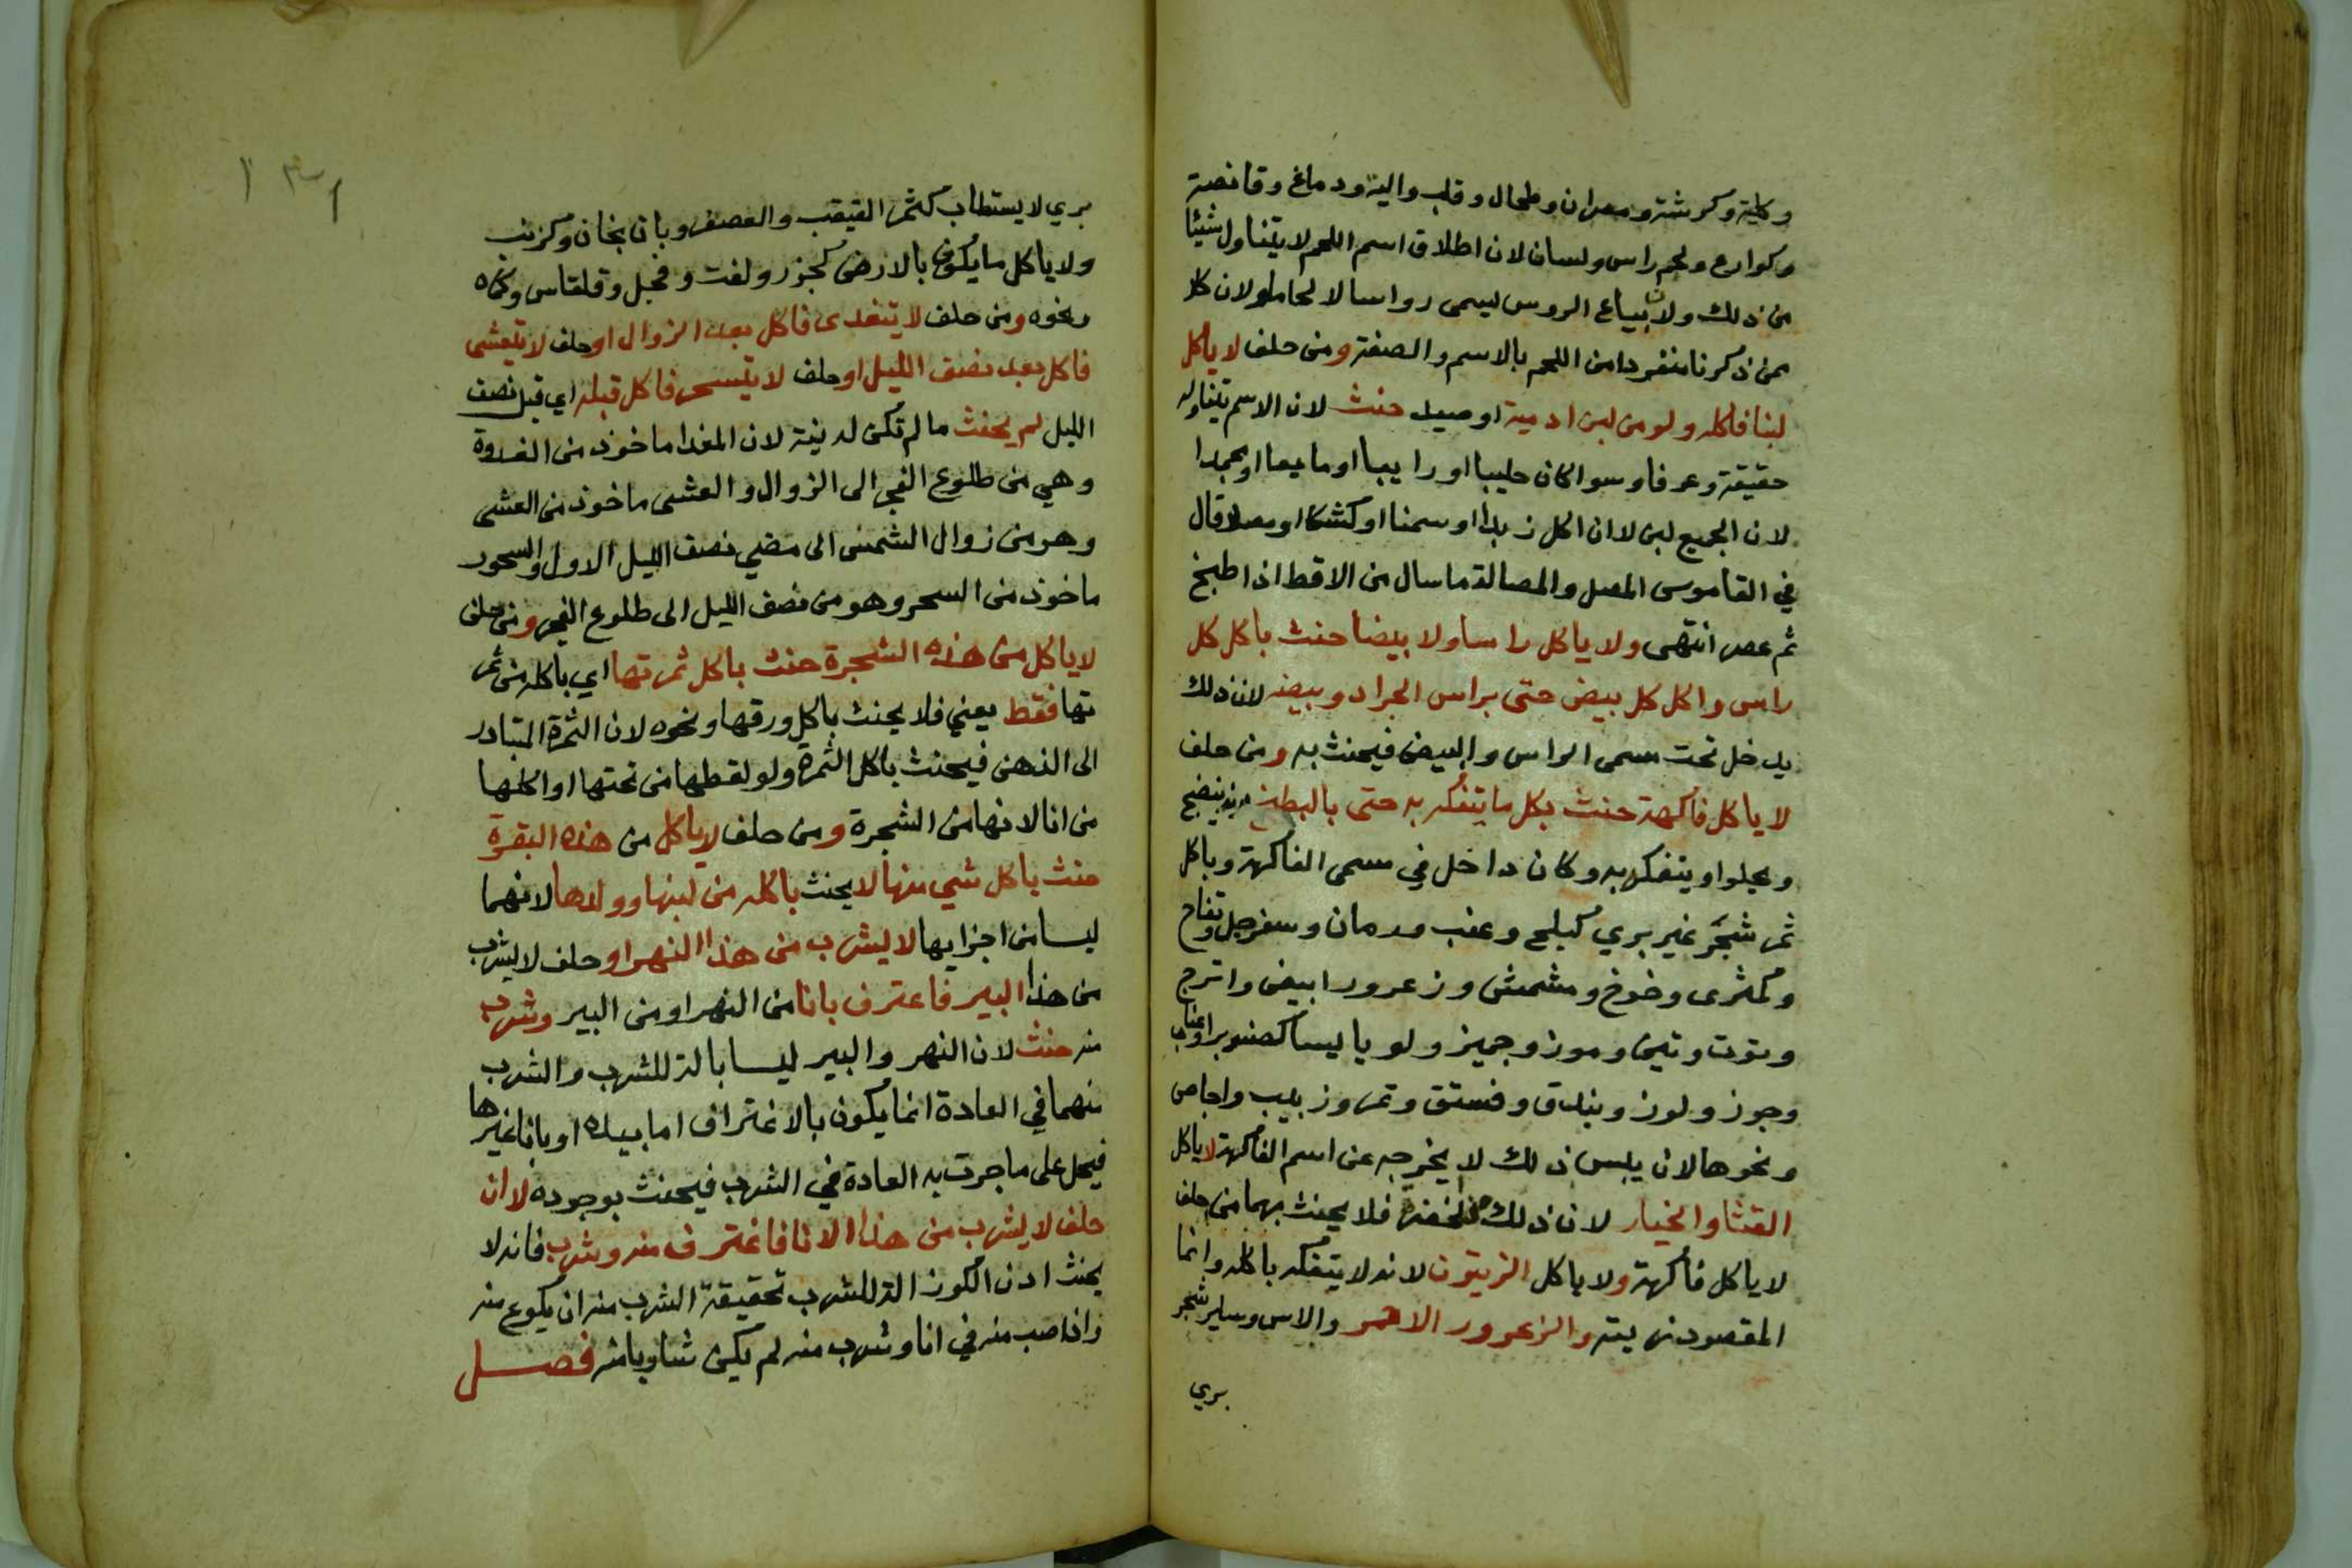 وكلية وكرشة ومصران وطحال وقلب والية ودماغ وقانصة
وكوارع ولحم راس ولسان لان اطلاق اسم اللحم لا يتناول شيئا
من ذلك ولان بياع الروس ليسمى رواسا لا لحاما ولان كلا
ممن ذكرنا منفردا من اللحم بالاسم والصفة ومن حلف لا ياكل
لبنا فاكله ولو من لبن ادمية او صيد حنث لان الاسم يتناوله
حقيقة وعرفا وسوا كان حليبا او رايبا او مايعا او مجمدا
لان الجميع لبن لا ان اكل زبدا او سمنا او كشكا او مصلا قال
في القاموس المصل والمصالة ما سال من الاقط اذا طبخ
ثم عصر انتهى ولا ياكل راسا ولا بيضا حنث باكل كل
راس واكل كل بيض حتى براس الجراد وبيضه لان ذلك
يدخل تحت مسمى الراس والبيض فيحنث به ومن حلف
لا ياكل فاكهة حنث بكل ما يتفكه به حتى بالبطيخ لانه ينضج
ويحلوا ويتفكه به وكان داخل في مسمى الفاكهة وباكل
ثمر شجر غير بري كبلح وعنب ورمان وسفرجل وتفاح
وكمثرى وخوخ ومشمش وزعرور ابيض واترج
وتوت وتين وموز وجميز ولو يابسا كصنوبر وعناب
وجوز ولوز وبندق وفستق وتمر وزبيب واجاص
ونحوها لان يبس ذلك لا يخرجه عن اسم الفاكهة لا ياكل
القثا والخيار لان ذلك من الخضرة فلا يحنث بهما من حلف
لا ياكل فاكهة ولا ياكل الزيتون لانه لا يتفكه باكله وانما
المقصود زيته والزعرور الاحمر والاس وساير شجر
بري
١٣١
بري لا يستطاب كثمر القيقب والعصف وباذنجان وكرنب
ولا ياكل ما يكون بالارض كجزر ولفت وفجل وقلقاس وكماه
ونحوه ومن حلف لا يتغدى فاكل بعد الزوال او حلف لا يتعشى
فاكل بعد نصف الليل او حلف لا يتسحر فاكل قبله اي قبل نصف
الليل لم يحنث ما لم تكن له نية لان الغدا ماخوذ من الغدوة
وهي من طلوع الفجر الى الزوال والعشى ماخوذ من العشى
وهو من زوال الشمس الى مضي نصف الليل الاول والسحور
ماخوذ من السحر وهو من نصف الليل الى طلوع الفجر ومن حلف
لا ياكل من هذه الشجرة حنث باكل ثمرتها اي باكله من ثمر
تها فقط يعني فلا يحنث باكل ورقها ونحوه لان الثمرة المتبادر
الى الذهن فيحنث باكل الثمرة ولو لقطها من تحتها او اكلها
من انا لانها من الشجرة ومن حلف لا ياكل من هذه البقرة
حنث باكل شي منها لا يحنث باكله من لبنها وولدها لانهما
ليسا من اجزايها لا يشرب من هذا النهر او حلف لا يشرب
من هذا البير فاغترف بانا من النهر او من البير وشرب
منه حنث لان النهر والبير ليسا بالة للشرب والشرب
منهما في العادة انما يكون بالاغتراف اما بيده او بانا غيرها
فيحمل على ما جرت به العادة في الشرب فيحنث بوجوده لا ان
حلف لا يشرب من هذا الانا فاغترف منه وشرب فانه لا
يحنث اذن الكوز الة للشرب تحقيقة الشرب منه ان يكرع منه
واذا صب منه في انا وشرب منه لم يكن شاربا منه فصل